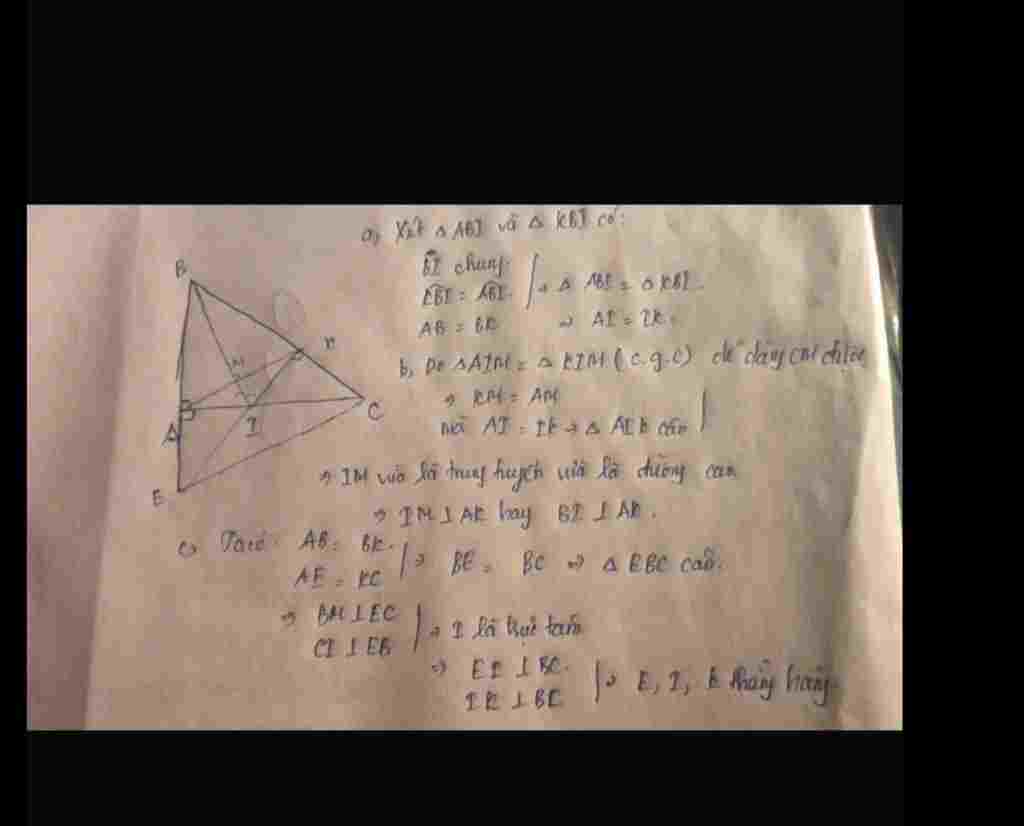 a) Xét Δ ABI và Δ KBI có:
BI chung
KBI = ABI
AB = BK
⇒ Δ ABI = Δ KBI.
⇒ AI = IK.
b, Do ΔAIM = Δ KIM (c.g.c) dễ dàng CM được
⇒ KM = AM
mà AI = IK ⇒ Δ AIK cân
⇒ IM vừa là trung tuyến vừa là đường cao
⇒ IM ⊥ AK hay BI ⊥ AK.
c) Ta có: AB = BK.
AE = KC
⇒ BE = BC ⇒ Δ EBC cân.
⇒ BM ⊥ EC
CI ⊥ EB
⇒ I là trực tâm
⇒ EI ⊥ BC.
IK ⊥ BC
⇒ E, I, K thẳng hàng.
B
M
K
A
I
C
E